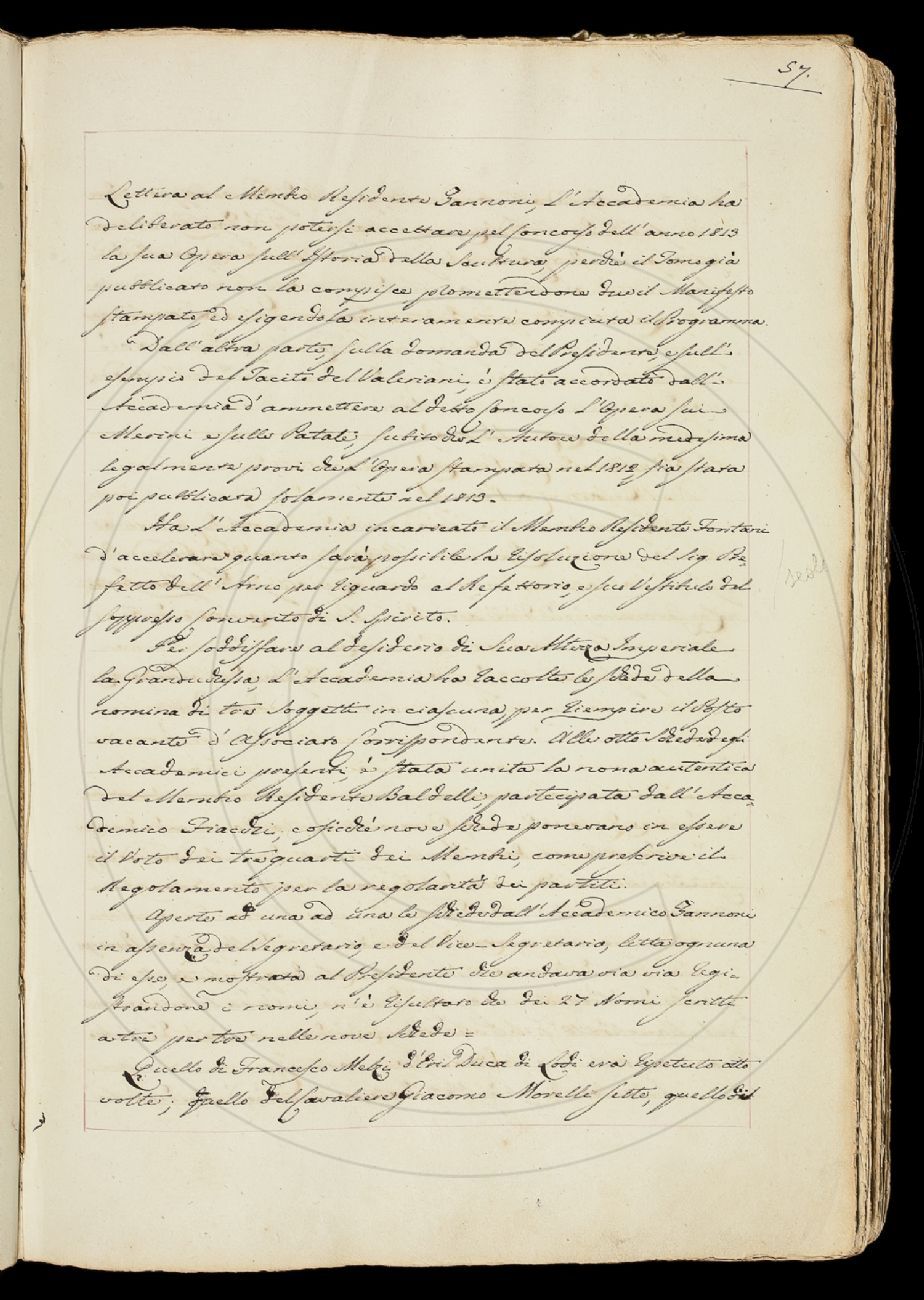 57.
Lettera al Membro Residente Zannoni, L'Accademia ha
deliberato non potersi accettare pel Concorso dell'anno 1813
la sua Opera sull'Istoria della Scultura, perchè il Tomo già
pubblicato non la compisce promettendone due il Manifesto
stampato, ed esigendola interamente compiuta il Programma.
Dall'altra parte, sulla domanda del Presidente, e sull'-
esempio del Tacito del Valeriani, è stato accordato dall'-
Accademia d'ammettere al detto Concorso L'Opera sui
Merini e sulle Patate, subito che L'Autore della medesima
legalmente provi che L'Opera stampata nel 1812 sia stata
poi pubblicata solamente nel 1813.
Ha L'Accademia incaricato il Membro Residente Fontani
d'accelerare quanto sarà possibile la risoluzione del Sig. Pre-
fetto dell'Arno, per riguardo al Refettorio, e suo Vestibulo del
soppresso Convento di S. Spirito.
Per soddisfare al desiderio di Sua Altezza Imperiale
la Granduchessa, L'Accademia ha raccolte le schede della
nomina di tre Soggetti in ciascuna, per riempire il Posto
vacante d'Associato Corrispondente. Alle otto Schede degli
Accademici presenti, è stata unita la nona autentica
del Membro Residente Baldelli, partecipata dall'Acca-
demico Fiacchi, cosicchè nove schede ponevano in essere
il Voto dei tre quarti dei Membri, come prescrive il
Regolamento per la regolarità dei partiti.
Aperte ad una ad una le schede dall'Accademico Zannoni
in assenza del Segretario, e del Vice-Segretario, letta ognuna
di esse, e mostrata al Presidente che andava via via regi-
strandone i nomi, n'è risultato che dei 27 Nomi scritti
a tre per tre nelle nove schede =
Quello di Francesco Melzi d'Eril Duca di Lodi era ripetuto otto
volte; quello del Cavaliere Giacomo Morelli sette, quello del